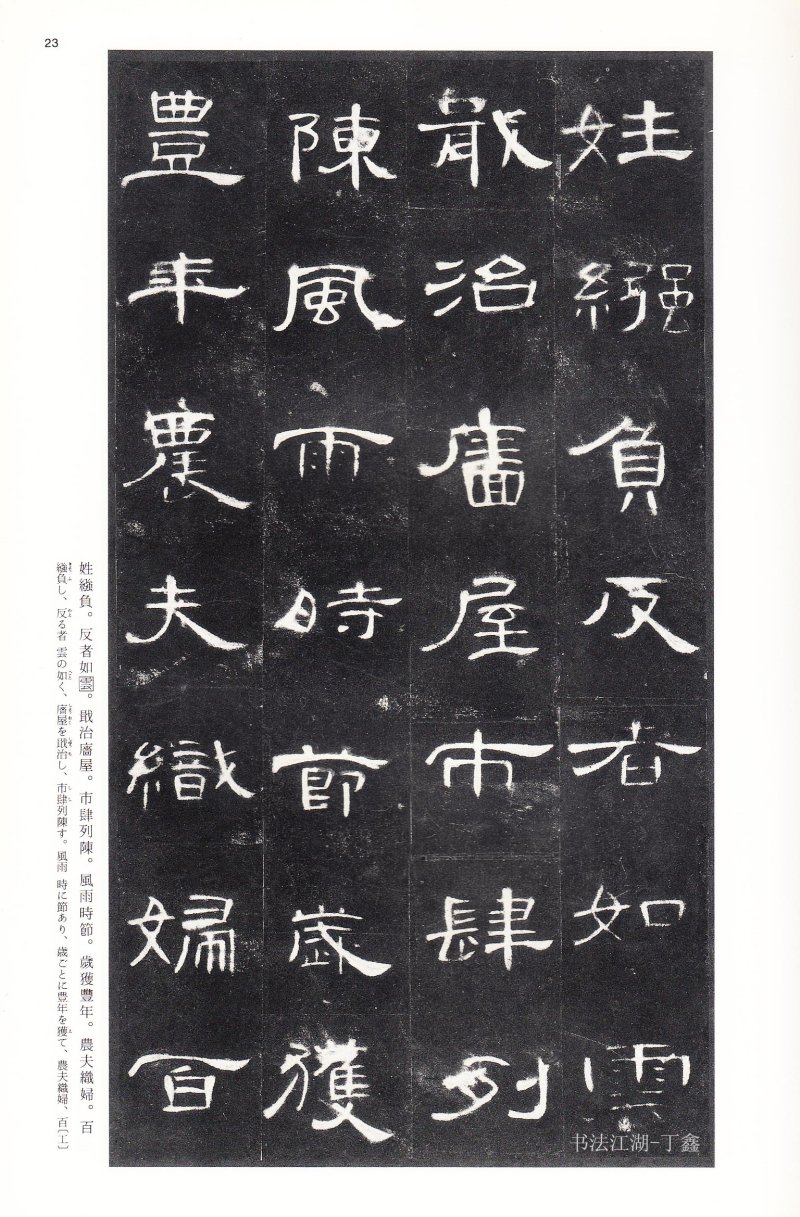 23
姓繈負反者如雲
㪚治廧屋市肆列
陳風雨時節歲獲
豐年農夫織婦百
姓繈負。反者如雲。㪚治廧屋。市肆列陳。風雨時節。歲獲豐年。農夫織婦。百
繈負し、反る者 雲の如く、廧屋を㪚治し、市肆列陳す。風雨 時に節あり、歳ごとに豊年を獲て、農夫織婦、百〔工〕
书法江湖-丁鑫